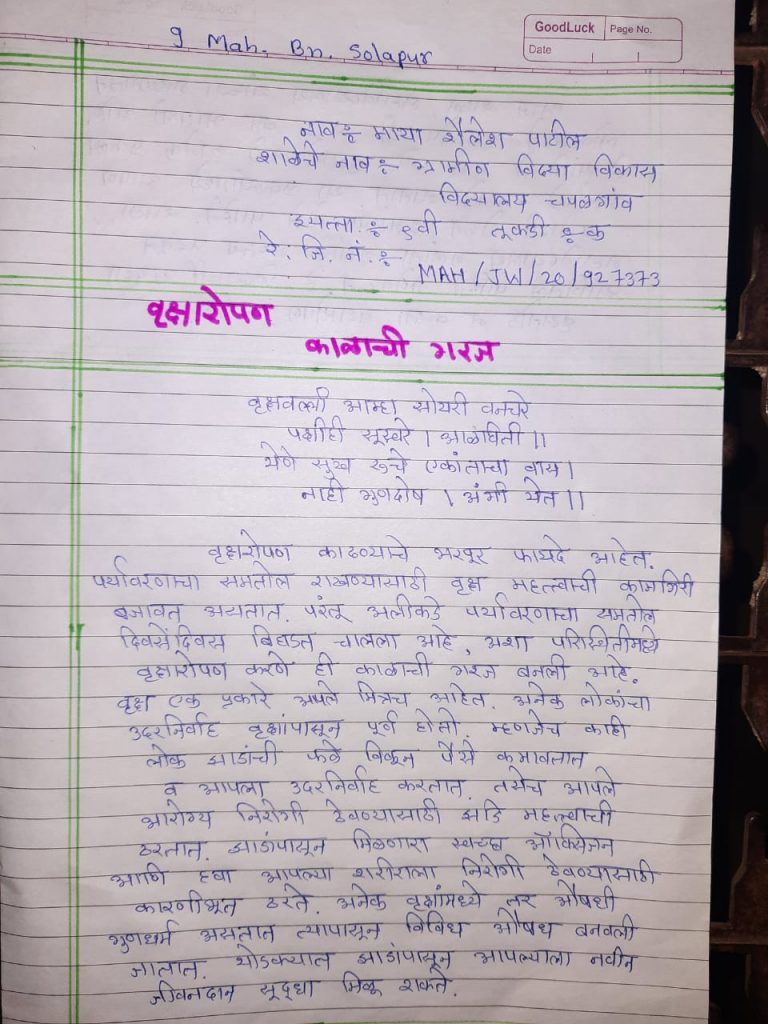 9 Mah. Bn. Solapur
GoodLuck Page No.
Date
नाव :- माया शैलेश पाटील
शाळेचे नाव :- ग्रामीण विद्या विकास
विद्यालय चपळगांव
इयत्ता :- ९वी तूकडी :- क
रे. जि. नं. :-
MAH/JW/20/927373
वृक्षारोपन
काळाची गरज
वृक्षवल्ली आम्हा सोयरी वनचरे
पक्षीही सूस्वरे । आळविती ।।
येणे सुख रूचे एकांताचा वास ।
नाही गुणदोष । अंगी येत ।।
वृक्षरोपण काढण्याचे भरपूर फायदे आहेत.
पर्यावरणाचा समतोल राखण्यासाठी वृक्ष महत्त्वाची कामगिरी
बजावत असतात. परंतू अलीकडे पर्यावरणाचा समतोल
दिवसेंदिवस बिघडत चालला आहे. अशा परिस्थितीमध्ये
वृक्षारोपण करणे ही काळाची गरज बनली आहे.
वृक्ष एक प्रकारे आपले मित्रच आहेत. अनेक लोकांचा
उदरनिर्वाह वृक्षांपासून पूर्व होतो. म्हणजेच काही
लोक झाडांची फळे विकून पैसे कमावतात
व आपला उदरनिर्वाह करतात. तसेच आपले
आरोग्य निरोगी ठेवण्यासाठी झाडे महत्त्वाची
ठरतात. झाडांपासून मिळणारा स्वच्छ ऑक्सिजन
आणि हवा आपल्या शरीराला निरोगी ठेवण्यासाठी
कारणीभूत ठरते. अनेक वृक्षांमध्ये तर औषधी
गुणधर्म असतात त्यापासून विविध औषध बनवली
जातात. थोडक्यात झाडांपासून आपल्याला नवीन
जीवनदान सूद्धा मिळू शकते.